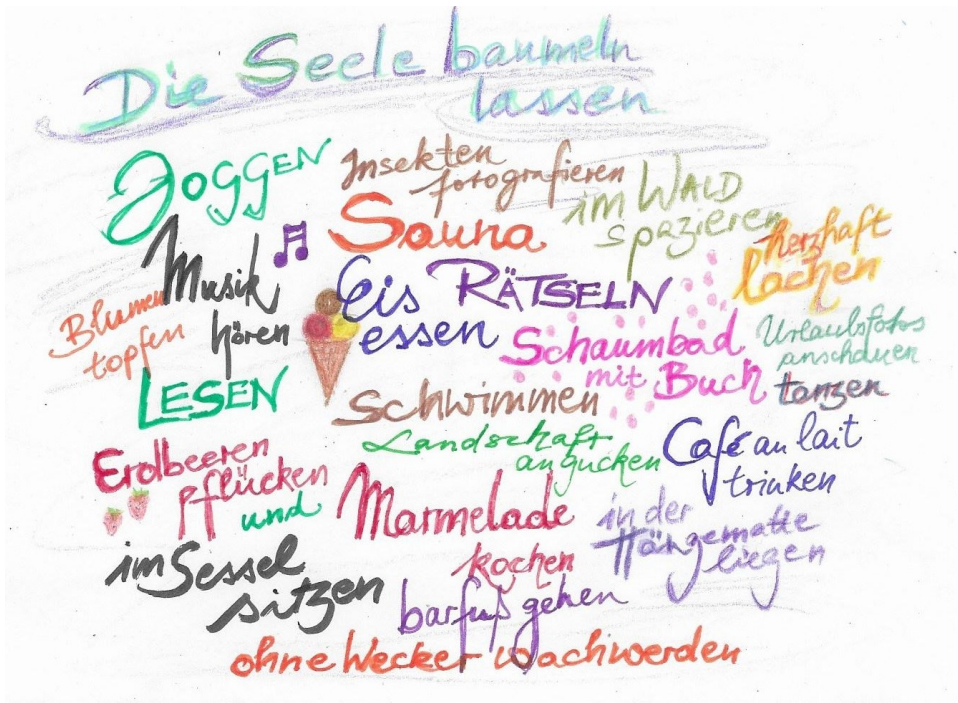 Die Seele baumeln
lassen
JOGGEN
Insekten
fotografieren
im WALD
spazieren
Sauna
herzhaft
lachen
Musik
hören
Eis
essen
RÄTSELN
Blumen
topfen
Schaumbad
mit Buch
Urlaubsfotos
anschauen
tanzen
LESEN
Schwimmen
Landschaft
angucken
Café au lait
trinken
Erdbeeren
pflücken
und
Marmelade
kochen
in der
Hängematte
liegen
im Sessel
sitzen
barfuß gehen
ohne Wecker wachwerden